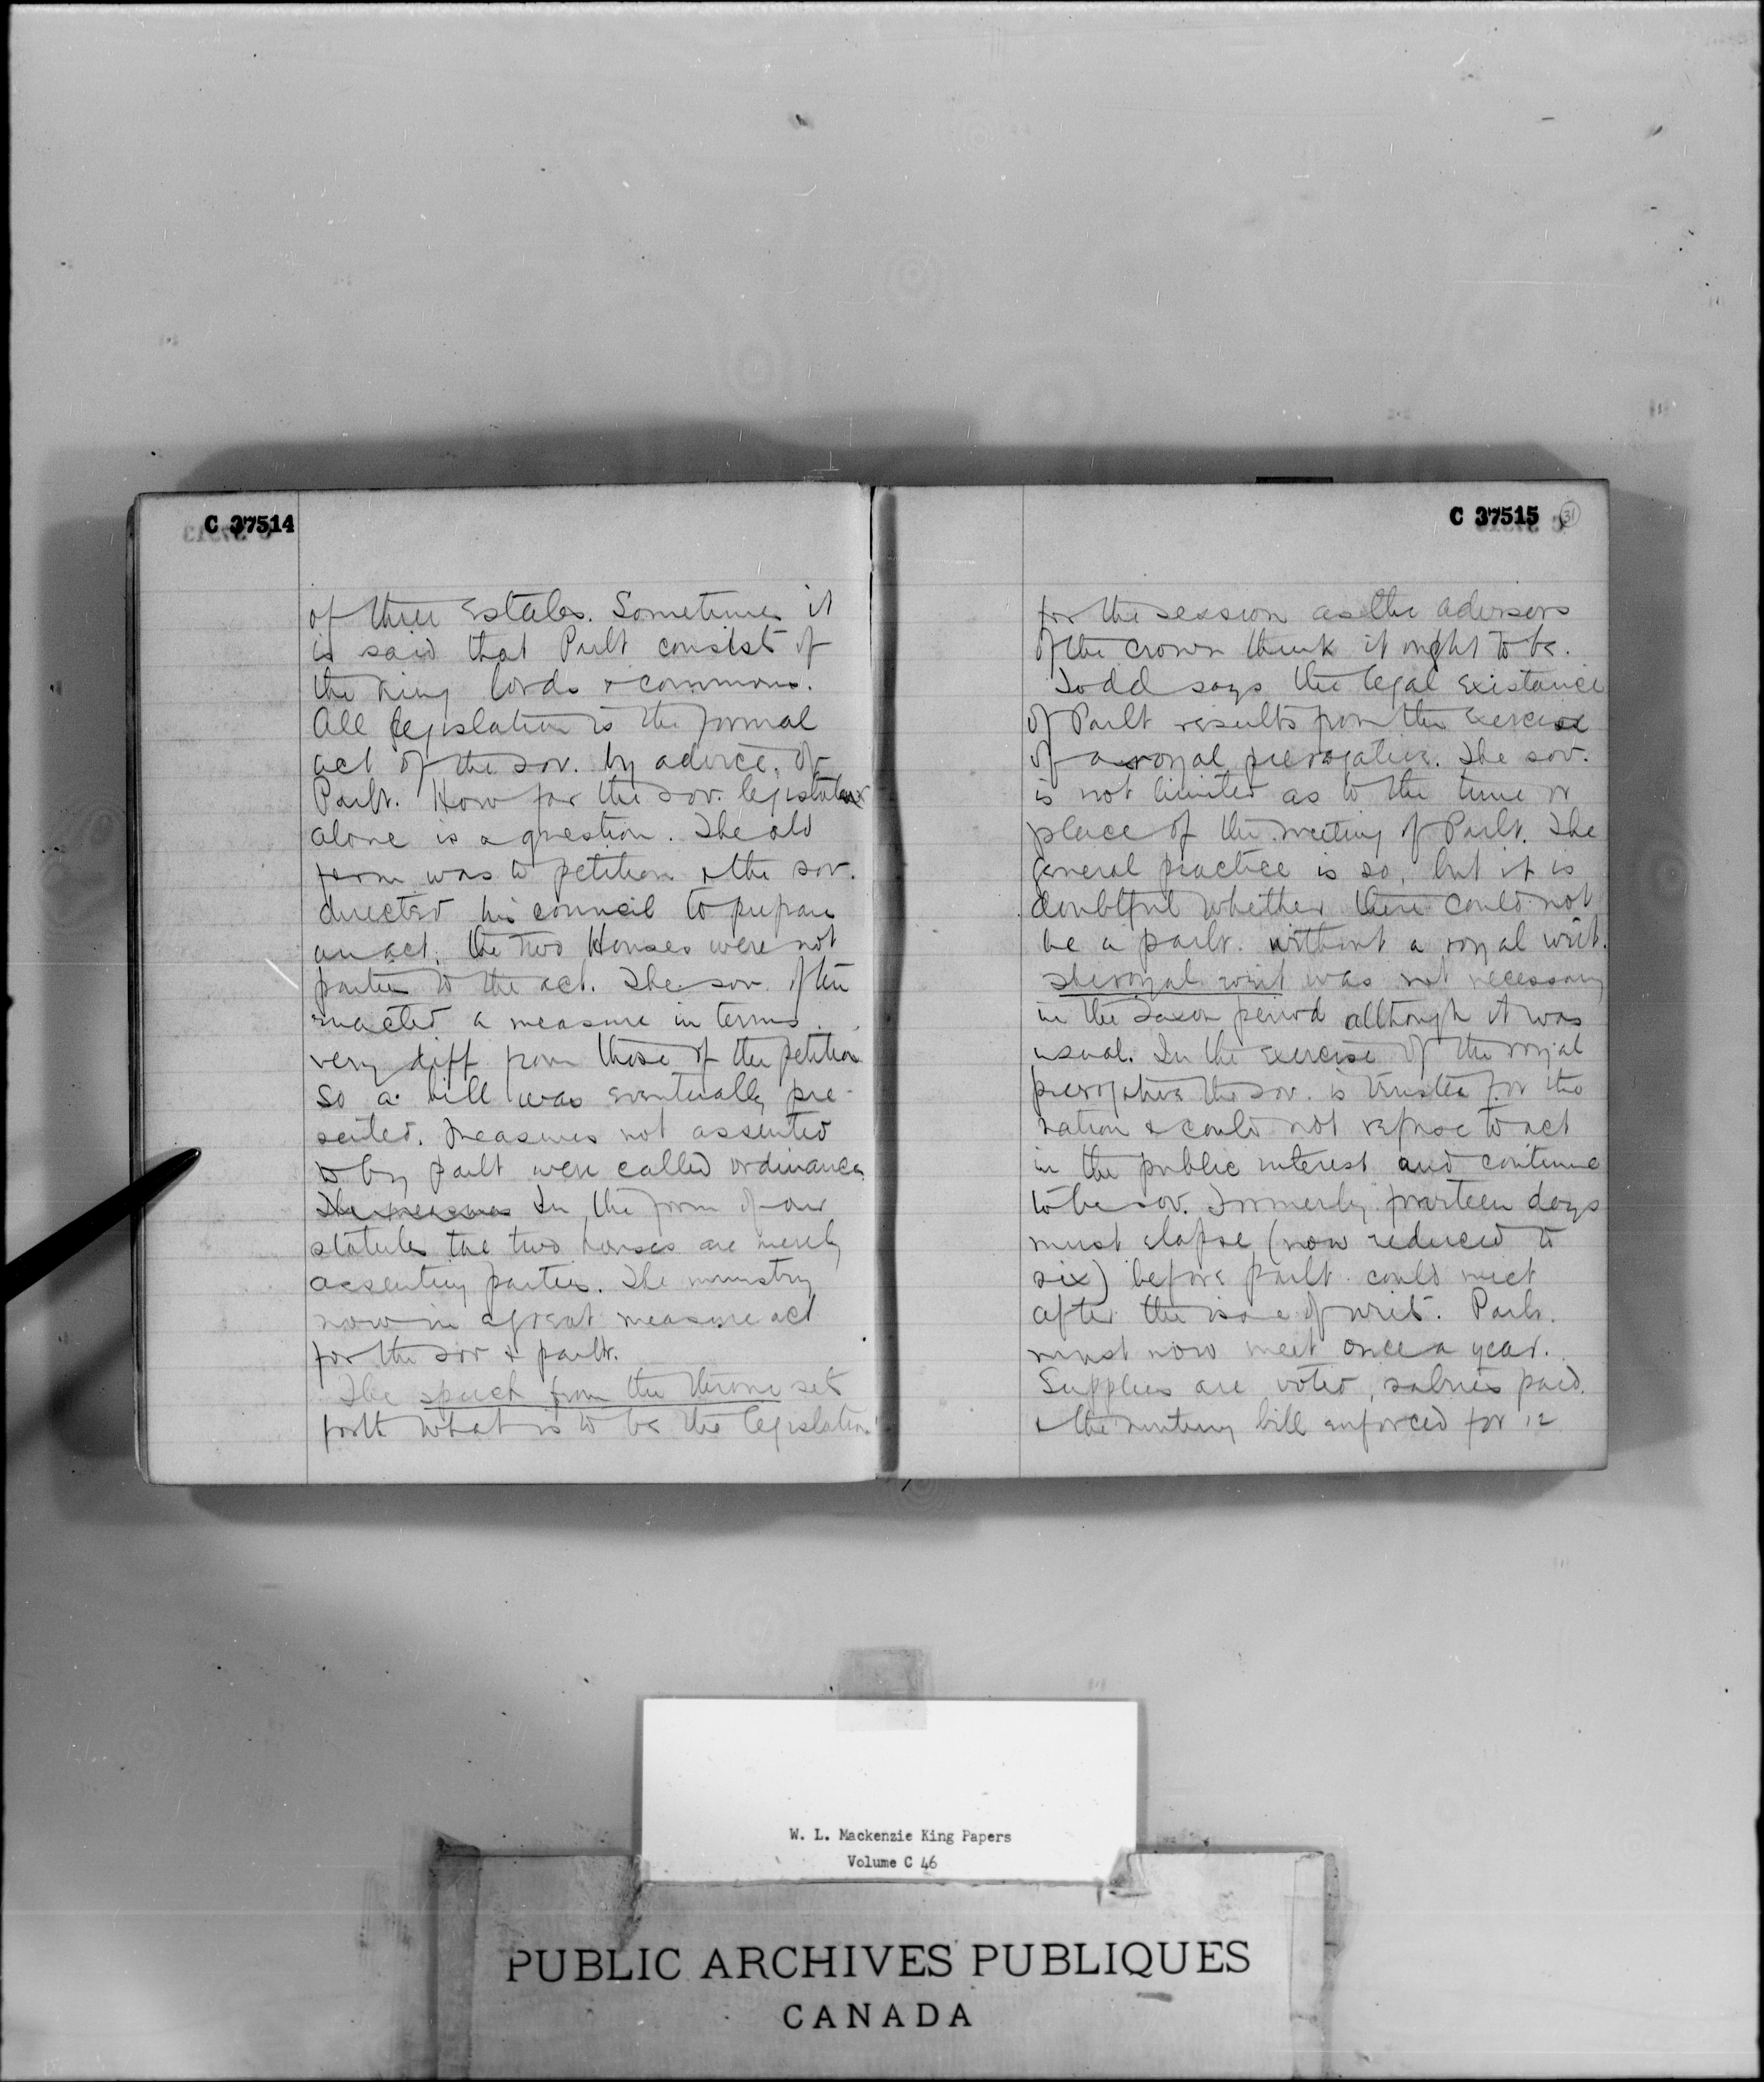 C 37514
of three Estates. Sometimes it
is said that Parlt consists of
the King lords & commons.
All legislation is the formal
act of the sov. by advice of
Parlt. How far the sov. legislates
alone is a question. The old
form was to petition & the sov.
directed his council to prepare
an act. the two Houses were not
parties to the act. The sov. often
enacted a measure in terms
very diff from those of the petition
So a bill was eventually pre-
sented. Measures not assented
to by parlt were called ordinances.
The measures In the form of our
statutes the two houses are merely
assenting parties. The ministry
now in a great measure act
for the sov & parlt.
The speech from the throne sets
forth what is to be the legislation
C 37515 31
for the session as the advisors
of the crown think it ought to be.
Todd says the legal existance
of Parlt results from the exercise
of a royal prerogative. The sov.
is not limited as to the time or
place of the meeting of Parlt. The
general practice is so, but it is
doubtful whether there could not
be a parlt. without a royal writ.
The royal writ was not necessary
in the Saxon period allthough it was
usual. In the exercise of the royal
prerogative the sov. is trustee for the
nation & could not refuse to act
in the public interest and continue
to be sov. Formerly fourteen days
must elapse (now reduced to
six) before parlt. could meet
after the issue of writs. Parlt.
must now meet once a year.
Supplies are voted, salries paid.
& the mutiny bill enforced for 12
W. L. Mackenzie King Papers
Volume C 46
PUBLIC ARCHIVES PUBLIQUES
CANADA